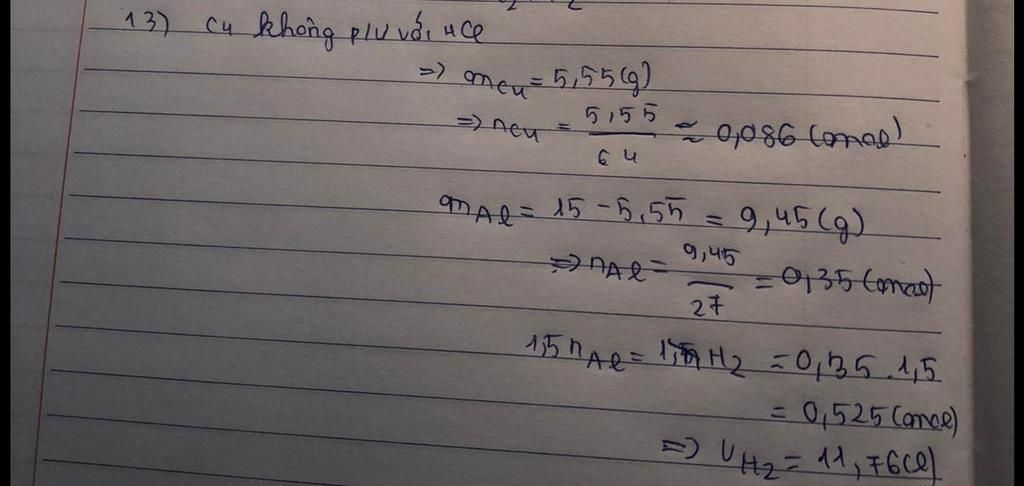 13) Cu không p/ư với HCl
=> mCu = 5,55(g)
=> nCu = 5,55/64 ≈ 0,086 (mol)
mAl = 15 - 5,55 = 9,45(g)
=> nAl = 9,45/27 = 0,35 (mol)
1,5nAl = H2 = 0,35 . 1,5
= 0,525(mol)
=> VH2 = 11,76(l)